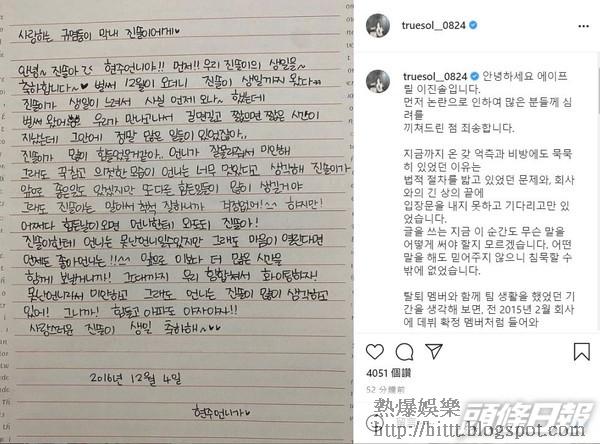 사랑하는 귀염둥이 막내 진쏠이에게♡
안녕~ 진쏠아 먼저!! 우리 진쏠이의 생일을~
축하합니다~♡ 벌써 12월이 오더니 진쏠이 생일까지 왔다
진쏠이가 생일이 느려서 사실 언제 와~ 했는데
벌써 왔어 우리가 만나고나서 길면길고 짧으면 짧은 시간이
지났는데 그안에 정말 많은 일들이 있었잖아..
진쏠이가 많이 힘들었을거같아.. 언니가 잘 못해줘서 미안해
그래도 꾹참고 의젓한 모습이 언니는 너무 멋있다고 생각해 진쏠이가
앞으로 좋은일도 있겠지만 또다른 힘든일들이 많이 생길거야
그래도 진쏠이는 알아서 척척 잘하니까 걱정없어!! 하지만!
어쩌다 힘든날이오면 언니한테 와도돼 진쏠아!
진쏠이한테 언니는 못난언니일수있지만 그래도 마음이 열린다면
언제든 좋아언니는!!^^ 앞으로 이보다 더 많은 시간을
함께 보낼거니까! 그때까지 우리 힘합쳐서 화이팅하자!
못난언니라서 미안하고 그래도 언니는 진쏠이 많이 생각하고
있어! 그니까! 힘들고 아파도 야자야자!!
사랑스러운 진쏠이 생일 축하해~♡♡
2016년 12월 4일
현주언니가♡
truesol__0824
truesol__0824 안녕하세요 에이프
릴 이진솔입니다.
먼저 논란으로 인하여 많은 분들께 심
려를
끼쳐드린 점 죄송합니다.
지금까지 온 갖 억측과 비방에도 묵묵
히 있었던 이유는
법적 절차를 밟고 있었던 문제와, 회사
와의 긴 상의 끝에
입장문을 내지 못하고 기다리고만 있
었습니다.
글을 쓰는 지금 이 순간도 무슨 말을
어떻게 써야 할지 모르겠습니다. 어떤
말을 해도 믿어주지 않으니 침묵할 수
밖에 없었습니다.
탈퇴 멤버와 함께 팀 생활을 했었던 기
간을 생각해 보면, 전 2015년 2월 회사
에 데뷔 확정 멤버처럼 들어와
4051 個讚
52 分鐘前
熱爆娛樂
頭條日報
http://hittt.blogspot.com